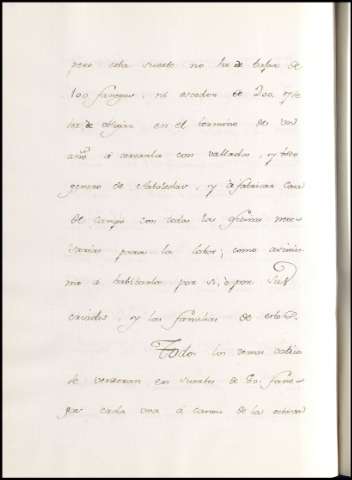 pero esta suerte no ha de bajar de
100 fanegas, ni exceder de 200 que
ha de obligar en el termino de un
año á cercarla con vallados, y otro
genero de
y á fabricar Casa
de campo con todas las oficinas nece
sarias para la labor, como asimis
mo á habitarla por si, ó por sus
criados, y las familias de estos.
Todas las demas
se venderan en suertes de 50. fane
gas cada una á canon de las